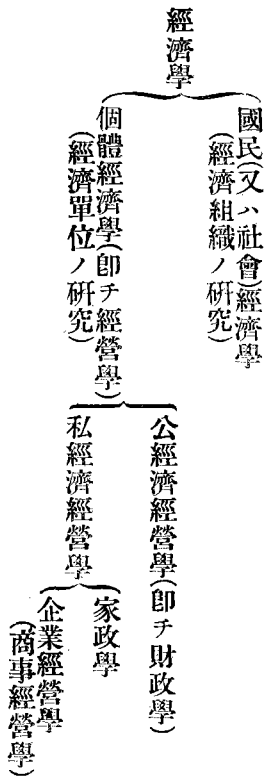 經濟學
國民(又ハ社會)經濟學
(經濟組織ノ硏究)
個體經濟學(卽チ經營學)
(經濟單位ノ硏究)
公經濟經營學(卽チ財政學)
私經濟經營學
家政學
企業經營學
(商事經營學)